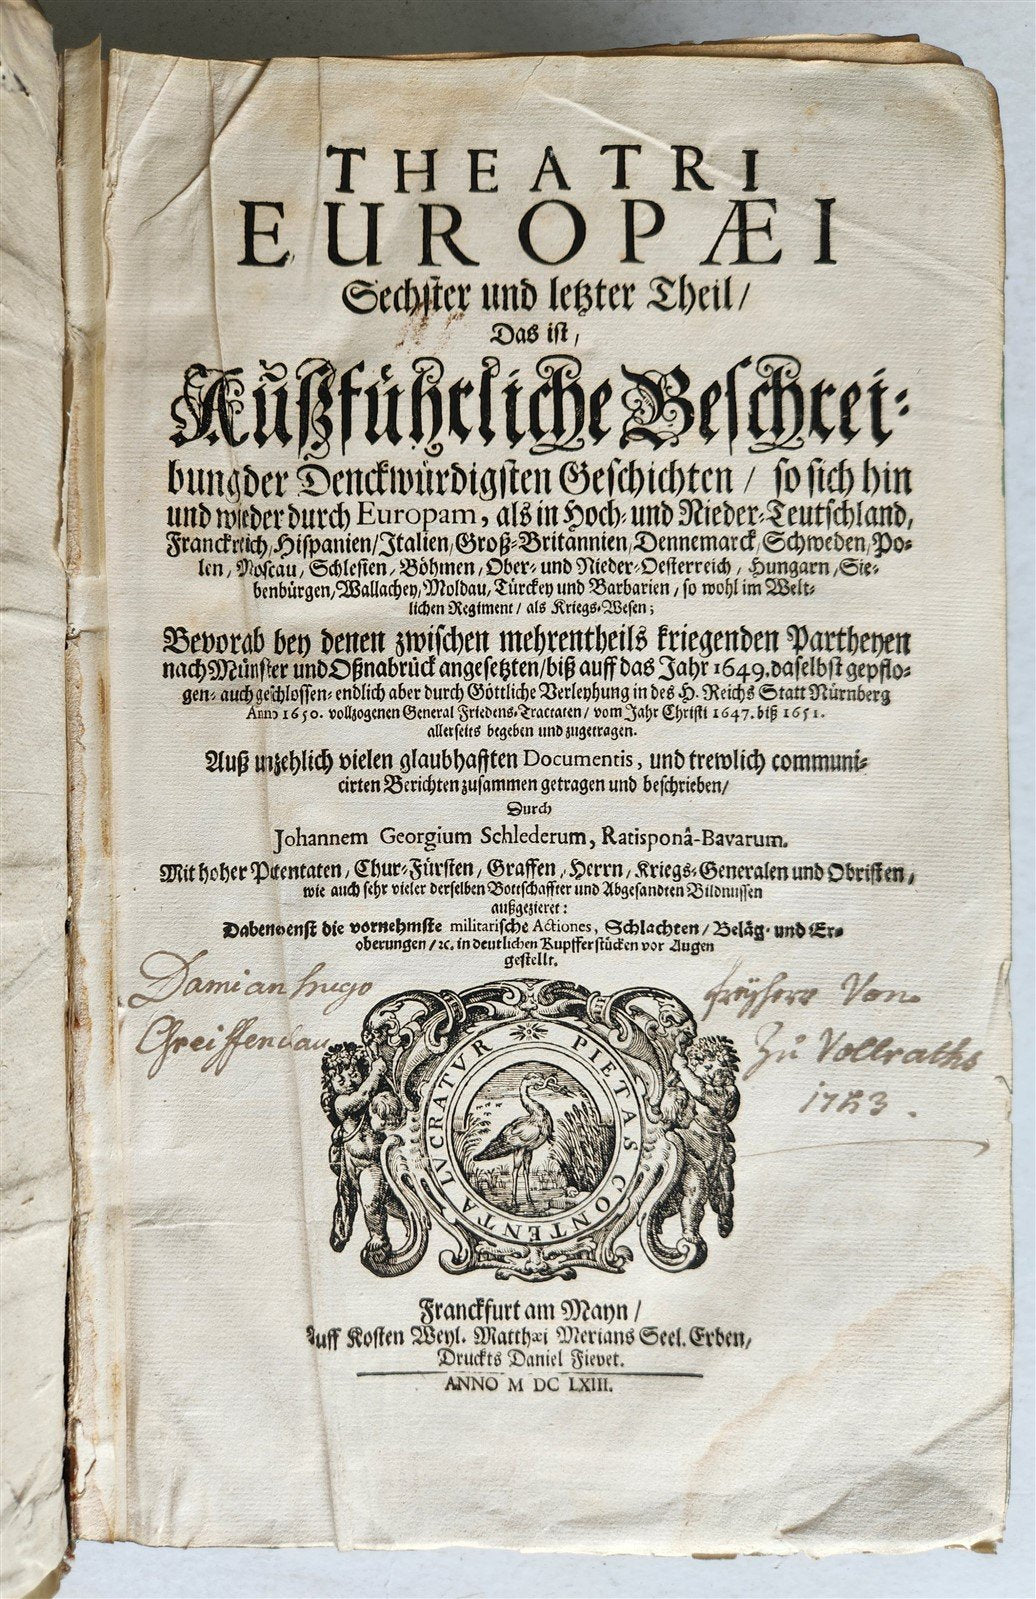 THEATRI
EUROPÆI
Sechster und letzter Theil/
Das ist,
Außführliche Beschrei-
bung der Denckwürdigsten Geschichten / so sich hin
und wieder durch Europam, als in Hoch- und Nieder-Teutschland,
Franckreich, Hispanien/ Italien, Groß-Britannien, Dennemarck, Schweden, Po-
len, Moscau, Schlesien, Böhmen, Ober- und Nieder-Oesterreich, Hungarn, Sie-
benbürgen, Wallachey, Moldau, Türckey und Barbarien, so wohl im Welt-
lichen Regiment/ als Kriegs-Wesen;
Bevorab bey denen zwischen mehrentheils kriegenden Partheyen
nach Münster und Oßnabrück angesetzten/ biß auff das Jahr 1649. daselbst gepflo-
gen- auch geschlossen- endlich aber durch Göttliche Verleyhung in des H. Reichs Statt Nürnberg
Anno 1650. vollzogenen General Friedens-Tractaten/ vom Jahr Christi 1647. biß 1651.
allerseits begeben und zugetragen.
Auß unzehlich vielen glaubhafften Documentis, und trewlich communi-
cirten Berichten zusammen getragen und beschrieben/
Durch
Johannem Georgium Schlederum, Ratisponâ-Bavarum.
Mit hoher Potentaten, Chur-Fürsten, Graffen, Herrn, Kriegs-Generalen und Obristen,
wie auch sehr vieler derselben Bottschaffter und Abgesandten Bildnussen
außgezieret:
Dabenebenst die vornehmste militarische Actiones, Schlachten/ Beläg- und Er-
oberungen/ ꝛc. in deutlichen Kupfferstücken vor Augen
gestellt.
Damian hugo freyherr Von
Greiffenclau zu Vollraths
1783.
PIETAS CONTENTA LVCRATVR
Franckfurt am Mayn/
Auff Kosten Weyl. Matthæi Merians Seel. Erben,
Druckts Daniel Fievet.
ANNO M DC LXIII.